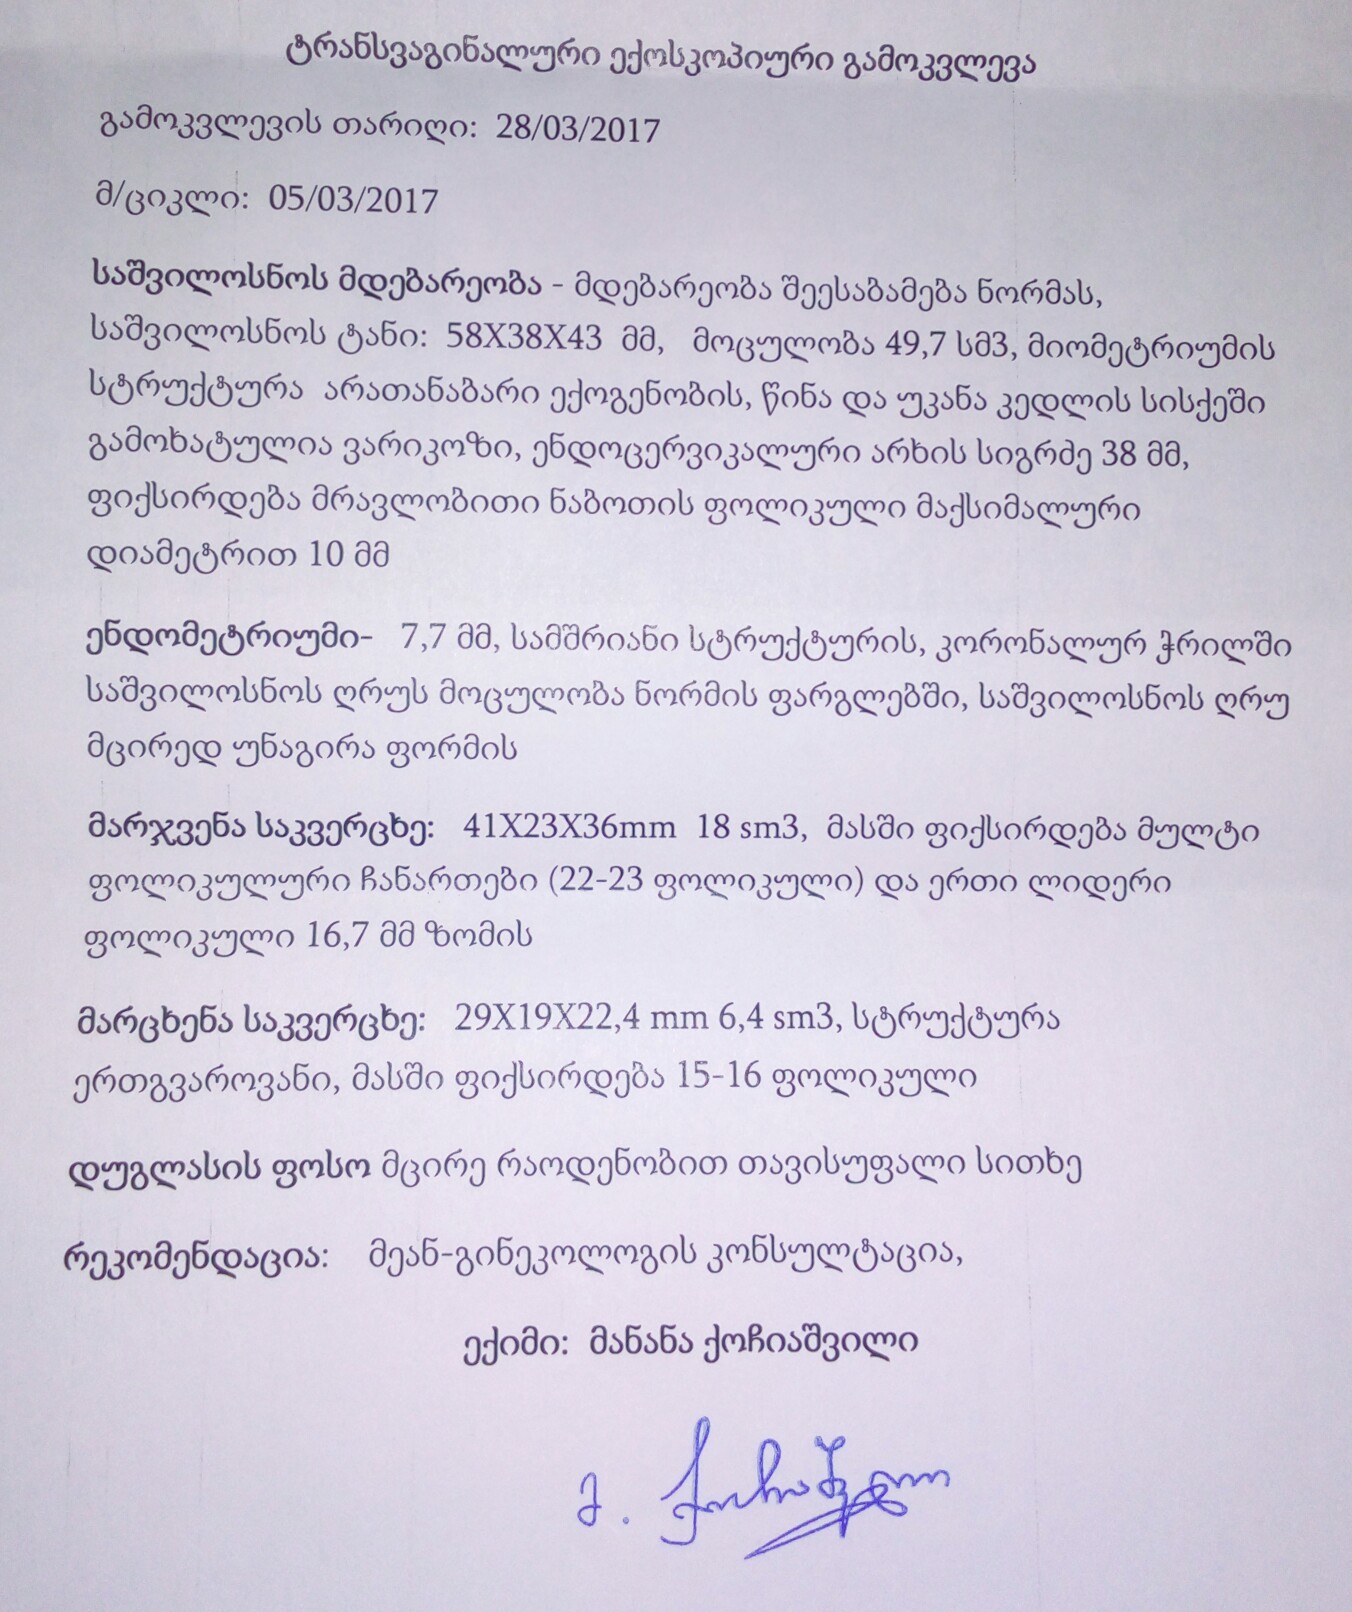 ტრანსვაგინალური ექოსკოპიური გამოკვლევა
გამოკვლევის თარიღი: 28/03/2017
მ/ციკლი: 05/03/2017
საშვილოსნოს მდებარეობა - მდებარეობა შეესაბამება ნორმას,
საშვილოსნოს ტანი: 58X38X43 მმ, მოცულობა 49,7 სმ3, მიომეტრიუმის
სტრუქტურა არათანაბარი ექოგენობის, წინა და უკანა კედლის სისქეში
გამოხატულია ვარიკოზი, ენდოცერვიკალური არხის სიგრძე 38 მმ,
ფიქსირდება მრავლობითი ნაბოთის ფოლიკული მაქსიმალური
დიამეტრით 10 მმ
ენდომეტრიუმი- 7,7 მმ, სამშრიანი სტრუქტურის, კორონალურ ჭრილში
საშვილოსნოს ღრუს მოცულობა ნორმის ფარგლებში, საშვილოსნოს ღრუ
მცირედ უნაგირა ფორმის
მარჯვენა საკვერცხე: 41X23X36mm 18 sm3, მასში ფიქსირდება მულტი
ფოლიკულური ჩანართები (22-23 ფოლიკული) და ერთი ლიდერი
ფოლიკული 16,7 მმ ზომის
მარცხენა საკვერცხე: 29X19X22,4 mm 6,4 sm3, სტრუქტურა
ერთგვაროვანი, მასში ფიქსირდება 15-16 ფოლიკული
დუგლასის ფოსო მცირე რაოდენობით თავისუფალი სითხე
რეკომენდაცია: მეან-გინეკოლოგის კონსულტაცია,
ექიმი: მანანა ქოჩიაშვილი